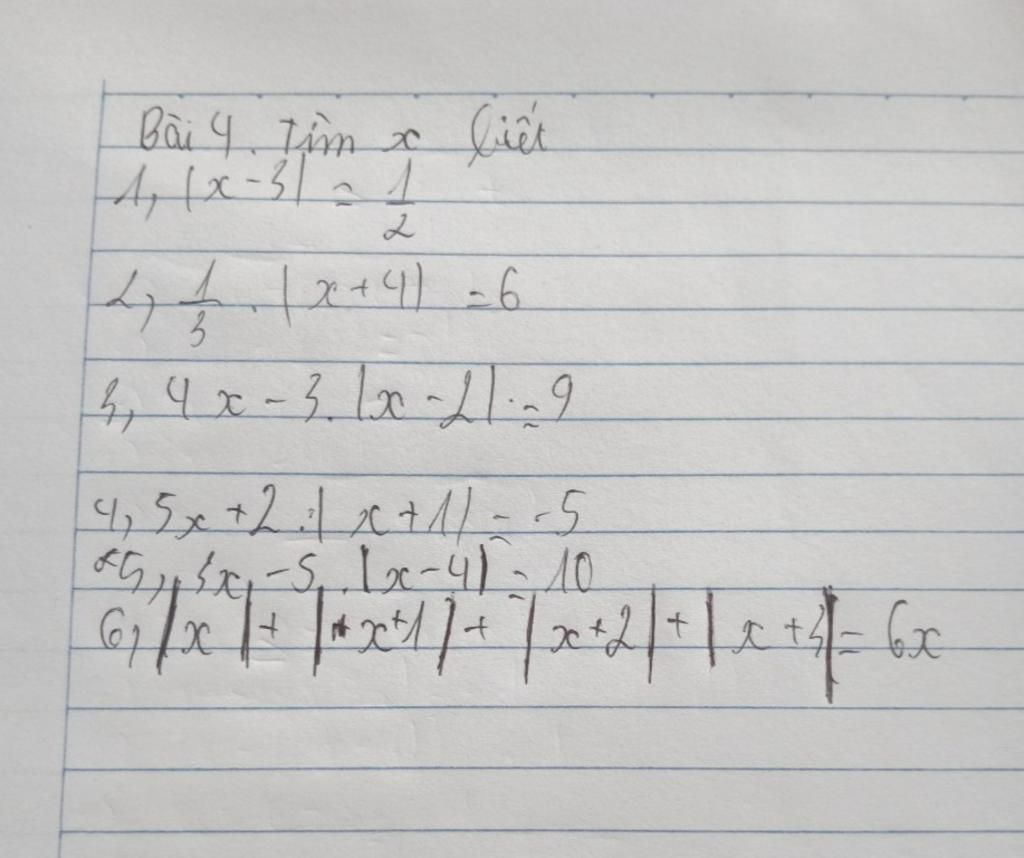 Bài 4. Tìm x biết
1, |x-3| = 1/2
2, 1/3 . |x+4| = 6
3, 4x - 3. |x-2| = 9
4, 5x + 2. |x+1| = -5
*5, 3x - 5. |x-4| = 10
6, |x| + |x+1| + |x+2| + |x+3| = 6x